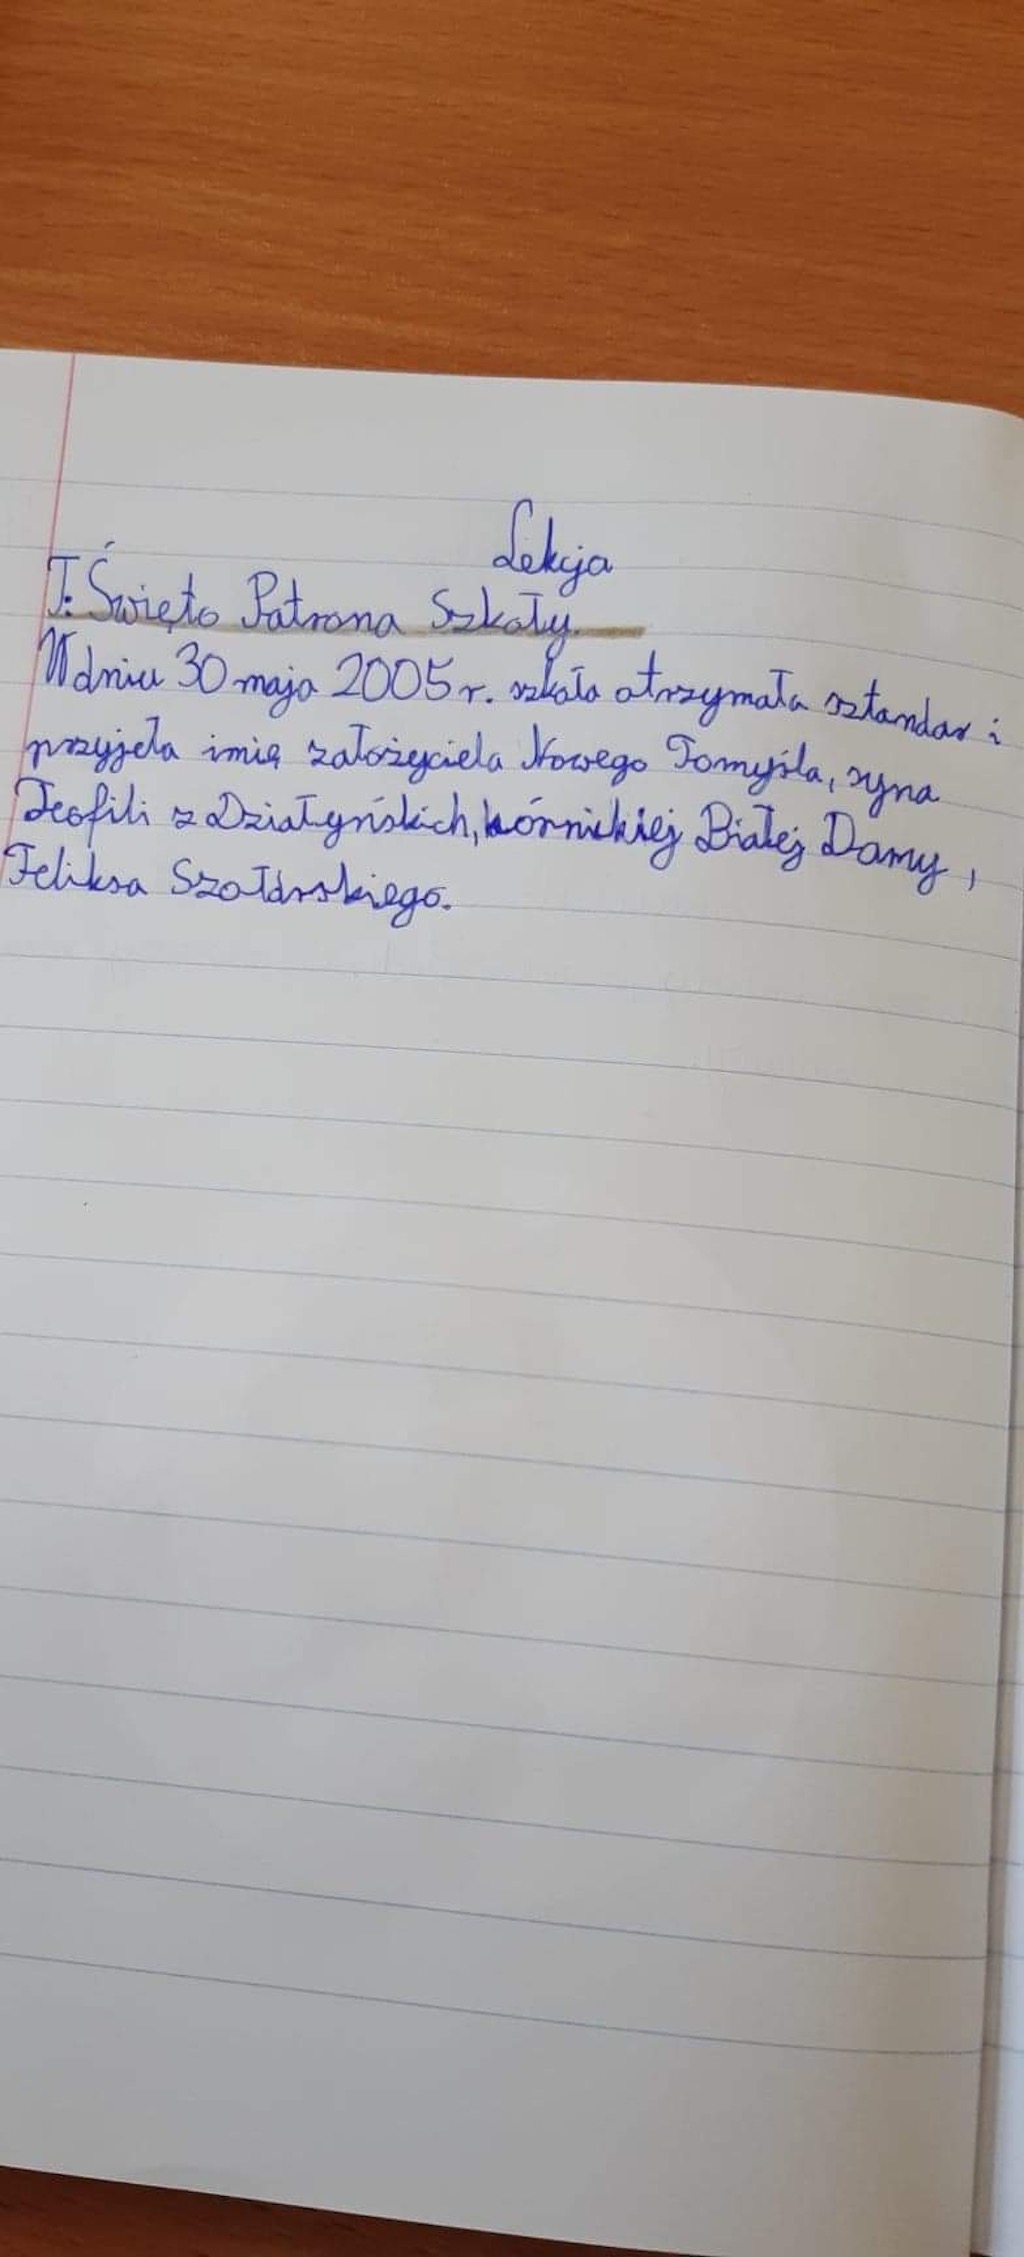 Lekcja
T: Święto Patrona Szkoły.
W dniu 30 maja 2005 r. szkoła otrzymała sztandar i
przyjęła imię założyciela Nowego Tomyśla, syna
Teofili z Działyńskich, kórnickiej Białej Damy,
Feliksa Szołdrskiego.